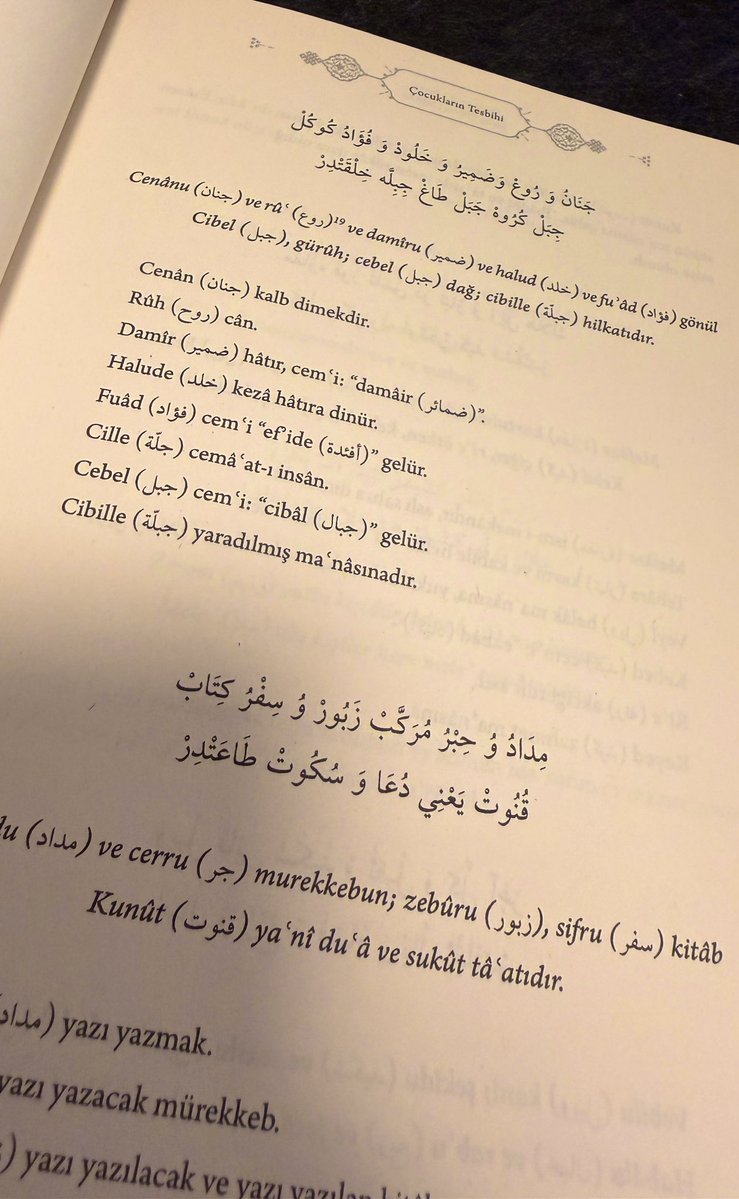 Çocukların Tesbihi
جَنَانُ وَ رُوعْ وَضَمِيرُ وَ خَلُودْ وَ فُؤَادُ كُوكُلْ
جِبَلْ كُرُوهْ جَبَلْ طَاغْ جِبِلَّه خِلْقَتْدِرْ
Cenânu (جنان) ve rûʿ (روع)¹⁹ ve damîru (ضمير) ve halud (خلد) ve fuʾâd (فؤاد) gönül
Cibel (جبل), gürûh; cebel (جبل) dağ; cibille (جبلّة) hilkatıdır.
Cenân (جنان) kalb dimekdir.
Rûh (روح) cân.
Damîr (ضمير) hâtır, cemʿi: “damâir (ضمائر)”.
Halude (خلد) kezâ hâtıra dinür.
Fuâd (فؤاد) cemʿi “ef’ide (أفئدة)” gelür.
Cille (جلّة) cemâʿat-ı insân.
Cebel (جبل) cemʿi: “cibâl (جبال)” gelür.
Cibille (جبلّة) yaradılmış maʿnâsınadır.
مِدَادُ وُ حِبْرُ مُرَكَّبْ زَبُورْ وُ سِفْرُ كِتَابْ
قُنُوتْ يَعْنِي دُعَا وَ سُكُوتْ طَاعَتْدِرْ
(مداد) ve cerru (جر) murekkebun; zebûru (زبور), sifru (سفر) kitâb
Kunût (قنوت) yaʿnî duʿâ ve sukût tâʿatıdır.
(مداد) yazı yazmak.
yazı yazacak mürekkeb.
) yazı yazılacak ve yazı